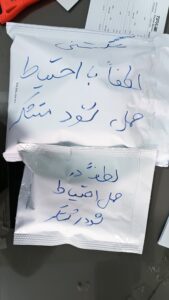 شکستنی
لطفاً با احتیاط
حمل شود متشکر
لطفاً در
حمل احتیاط
شود متشکر